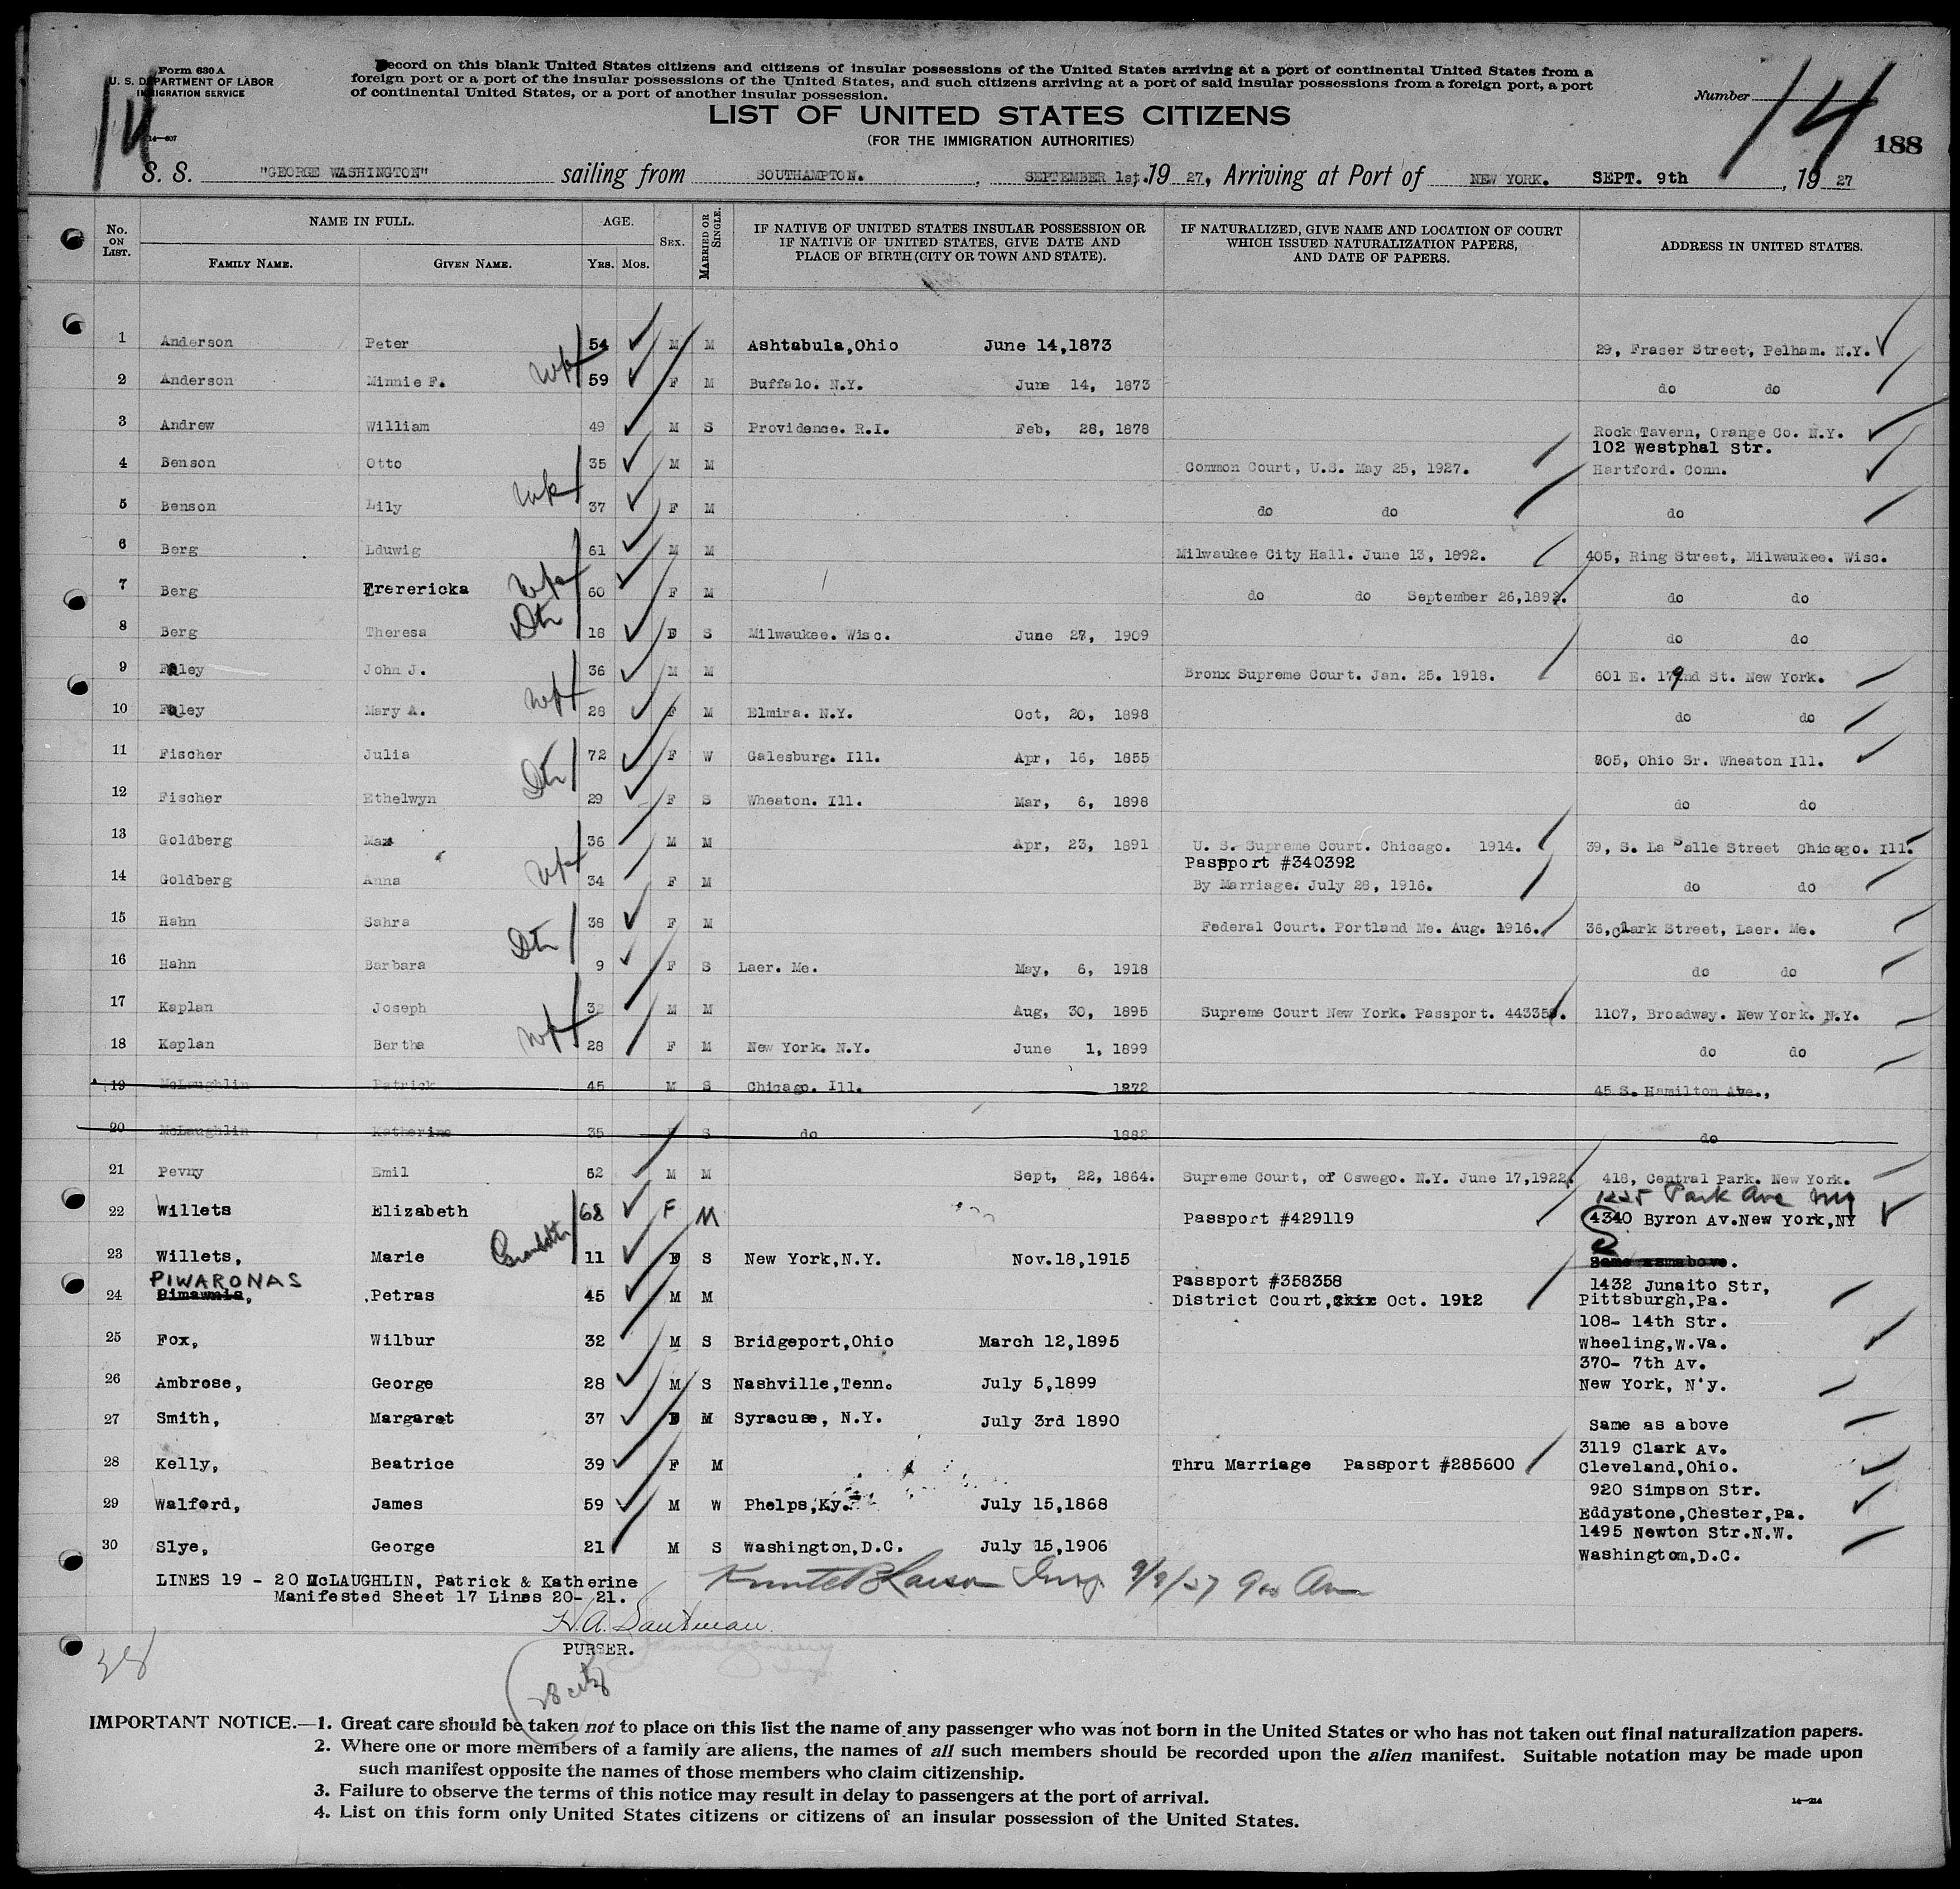 Form 630 A
U. S. DEPARTMENT OF LABOR
IMMIGRATION SERVICE
14—607
14
Record on this blank United States citizens and citizens of insular possessions of the United States arriving at a port of continental United States from a
foreign port or a port of the insular possessions of the United States, and such citizens arriving at a port of said insular possessions from a foreign port, a port
of continental United States, or a port of another insular possession.
LIST OF UNITED STATES CITIZENS
(FOR THE IMMIGRATION AUTHORITIES)
Number 14
188
S. S. "GEORGE WASHINGTON" sailing from SOUTHAMPTON. , SEPTEMBER 1st, 19 27, Arriving at Port of NEW YORK. SEPT. 9th , 19 27
No. ON LIST. NAME IN FULL. FAMILY NAME. GIVEN NAME. AGE. YRS. MOS. SEX. MARRIED OR SINGLE. IF NATIVE OF UNITED STATES INSULAR POSSESSION OR IF NATIVE OF UNITED STATES, GIVE DATE AND PLACE OF BIRTH (CITY OR TOWN AND STATE). IF NATURALIZED, GIVE NAME AND LOCATION OF COURT WHICH ISSUED NATURALIZATION PAPERS, AND DATE OF PAPERS. ADDRESS IN UNITED STATES.
1 Anderson Peter 54 M M Ashtabula,Ohio June 14,1873 29, Fraser Street, Pelham. N.Y.
2 Anderson Minnie F. 59 F M Buffalo. N.Y. June 14, 1873 do do
3 Andrew William 49 M S Providence. R.I. Feb, 28, 1878 Rock Tavern, Orange Co. N.Y.
102 Westphal Str.
4 Benson Otto 35 M M Common Court, U.S. May 25, 1927. Hartford. Conn.
5 Benson Lily 37 F M do do do
6 Berg Lduwig 61 M M Milwaukee City Hall. June 13, 1892. 405, Ring Street, Milwaukee. Wisc.
7 Berg Frerericka 60 F M do do September 26,1892. do do
8 Berg Theresa Dtr 18 F S Milwaukee. Wisc. June 27, 1909 do do
9 Foley John J. 36 M M Bronx Supreme Court. Jan. 25. 1918. 601 E. 179nd St. New York.
10 Foley Mary A. 28 F M Elmira. N.Y. Oct, 20, 1898 do do
11 Fischer Julia 72 F W Galesburg. Ill. Apr, 16, 1855 805, Ohio Sr. Wheaton Ill.
12 Fischer Ethelwyn Dtr 29 F S Wheaton. Ill. Mar, 6, 1898 do do
13 Goldberg Max 36 M M Apr, 23, 1891 U. S. Supreme Court. Chicago. 1914. 39, S. La Salle Street Chicago. Ill.
Passport #340392
14 Goldberg Anna 34 F M By Marriage. July 28, 1916. do do
15 Hahn Sahra 38 F M Federal Court. Portland Me. Aug. 1916. 36,Clark Street, Laer. Me.
16 Hahn Barbara Dtr 9 F S Laer. Me. May, 6, 1918 do do
17 Kaplan Joseph 32 M M Aug, 30, 1895 Supreme Court New York. Passport. 443353. 1107, Broadway. New York. N.Y.
18 Kaplan Bertha 28 F M New York. N.Y. June 1, 1899 do do
19 McLaughlin Patrick 45 M S Chicago. Ill. 1872 45 S. Hamilton Ave.,
20 McLaughlin Katherine 35 F S do 1882 do
21 Pevny Emil 62 M M Sept, 22, 1864. Supreme Court, of Oswego. N.Y. June 17,1922. 418, Central Park. New York.
1225 Park Ave NY
22 Willets Elizabeth 68 F M Passport #429119 4340 Byron Av.New York,NY
23 Willets, Marie 11 F S New York,N.Y. Nov.18,1915 Same as above.
PIWARONAS Passport #358358 1432 Junaito Str,
24 Petras 45 M M District Court, Oct. 1912 Pittsburgh,Pa.
108- 14th Str.
25 Fox, Wilbur 32 M S Bridgeport,Ohio March 12,1895 Wheeling,W.Va.
370- 7th Av.
26 Ambrose, George 28 M S Nashville,Tenn. July 5,1899 New York, N'y.
27 Smith, Margaret 37 F M Syracuse, N.Y. July 3rd 1890 Same as above
3119 Clark Av.
28 Kelly, Beatrice 39 F M Thru Marriage Passport #285600 Cleveland,Ohio.
920 Simpson Str.
29 Walford, James 59 M W Phelps,Ky. July 15,1868 Eddystone,Chester,Pa.
1495 Newton Str.N.W.
30 Slye, George 21 M S Washington,D.C. July 15,1906 Washington,D.C.
LINES 19 - 20 McLAUGHLIN, Patrick & Katherine
Manifested Sheet 17 Lines 20- 21.
Larson Insp. 9/9/27 9 00 Am
H.A.
PURSER.
28
IMPORTANT NOTICE.—1. Great care should be taken not to place on this list the name of any passenger who was not born in the United States or who has not taken out final naturalization papers.
2. Where one or more members of a family are aliens, the names of all such members should be recorded upon the alien manifest. Suitable notation may be made upon
such manifest opposite the names of those members who claim citizenship.
3. Failure to observe the terms of this notice may result in delay to passengers at the port of arrival.
4. List on this form only United States citizens or citizens of an insular possession of the United States.
14—214